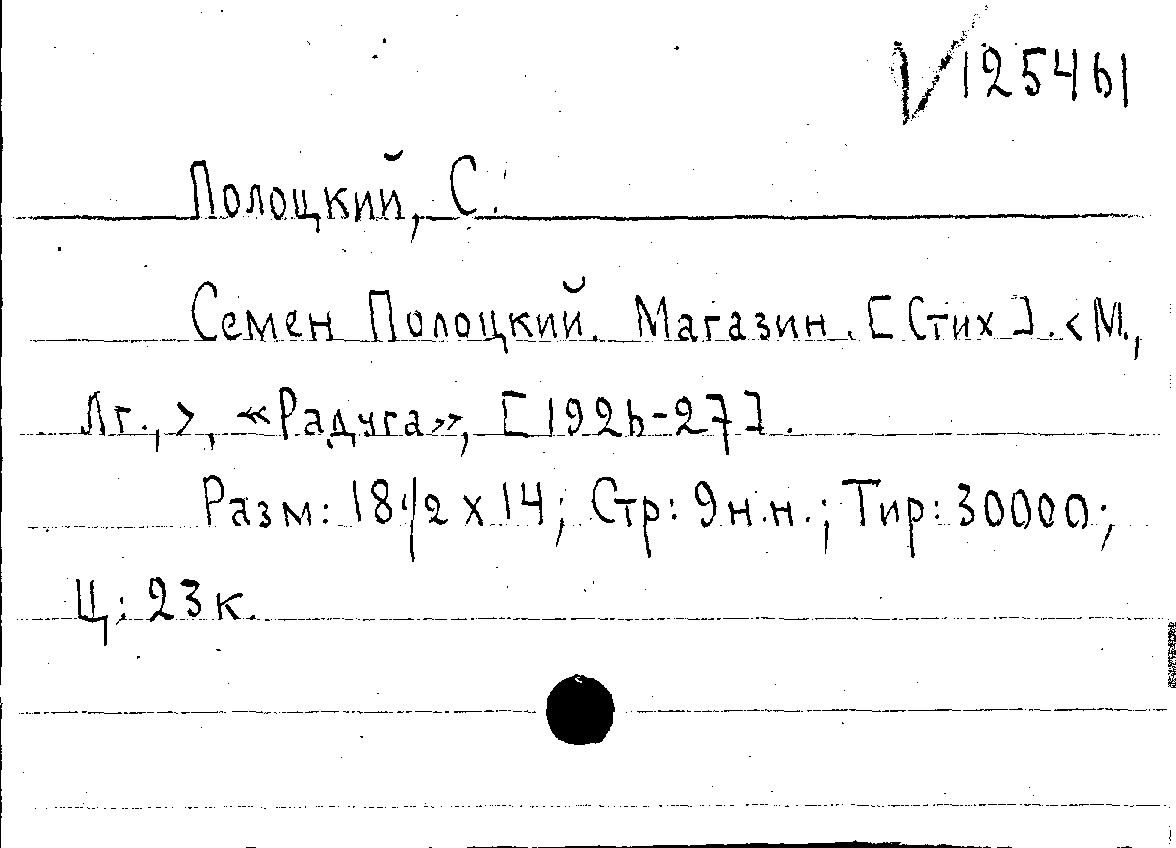 V125461
Полоцкий, С.
Семен Полоцкий. Магазин. [Стих]. <М.,
Лг.,>, «Радуга», [1926-27].
Разм: 18 1/2 x 14; Стр: 9 н.н.; Тир: 30000;
Ц: 23 к.